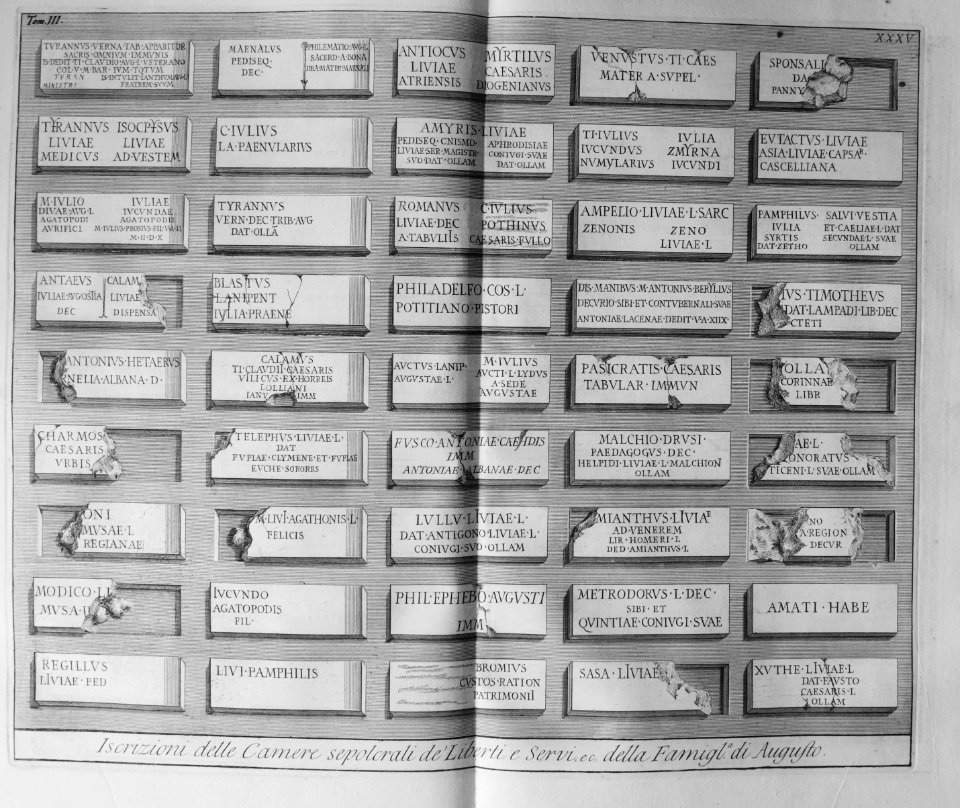 Tom. III.
XXXV
TYRANNVS·VERNA·TAB·APPARITOR
SACRIS·OMNIVM·IMMVNIS
IS·DEDIT·TI·CLAVDIO·AVG·L·VETERANO
TYRAN
MINISTRI
FRATREM·SVVM
MAENALVS
PEDISEQ·
DEC·
PHILEMATIO·AVG·L·
SACERD·A·BONA
DEA·MATER·MAENALI
ANTIOCVS MYRTILVS
LIVIAE CAESARIS
ATRIENSIS DIOGENIANVS
VENVSTVS·TI·CAES
MATER·A·SVPEL·
SPONSALI
DA
PANNY
TYRANNVS ISOCPYSVS
LIVIAE LIVIAE
MEDICVS AD·VESTEM
C·IVLIVS
LA·PAENVLARIVS
AMYRIS·LIVIAE
PEDISEQ·CNISMO· APHRODISIAE
LIVIAE·SER·MAGISTR· CONIVGI·SVAE
SVO·DAT·OLLAM DAT·OLLAM
TI·IVLIVS IVLIA
IVCVNDVS ZMYRNA
NVMVLARIVS IVCVNDI
EVTACTVS·LIVIAE
ASIA·LIVIAE·CAPSAR·
CASCELLIANA
M·IVLIO IVLIAE
DIVAE·AVG·L IVCVNDAE
AGATOPODI AGATOPODIS
AVRIFICI M·IVLIVS·PROSIVS·FIL·
TYRANNVS
VERN·DEC·TRIB·AVG
DAT·OLLÃ
ROMANVS C·IVLIVS
LIVIAE·DEC POTHINVS
A·TABVLIIS CAESARIS·FVLLO
AMPELIO·LIVIAE·L·SARC
ZENONIS ZENO
LIVIAE·L
PAMPHILVS· SALVI·VESTIA
IVLIA ET·CAELIAE·L·DAT
SYRTIS SECVNDAE·L·SVAE
DAT·ZETHO OLLAM
ANTAEVS CALAM
IVLIAE·AVG·OSTIA LIVIAE
DEC DISPENSA
BLASTVS
LANIPENT
IVLIA·PRAENE
PHILADELFO·COS·L·
POTITIANO·PISTORI
DIS·MANIBVS·M·ANTONIVS·BERYLIVS
DECVRIO·SIBI·ET·CONTVBERNALI·SVAE
ANTONIAE·LACENAE·DEDIT·V·A·XIIX·
IVS·TIMOTHEVS
DAT·LAMPADI·LIB·DEC
CTETI
ANTONIVS·HETAERVS
RNELIA·ALBANA·D·
CALAMVS
TI·CLAVDII·CAESARIS
VILICVS·EX·HORREIS
LOLLIANI
IANV IMM
AVCTVS·LANIP· M·IVLIVS
AVGVSTAE·L· AVCTI·L·LYDVS
A·SEDE
AVGVSTAE
PASICRATIS·CAESARIS
TABVLAR·IMMVN
OLLA
CORINNAE
LIBR
CHARMOS
CAESARIS
VRBIS
TELEPHVS·LIVIAE·L·
DAT
PVPIAE·CLYMENE·ET·PVPIAE
EVCHE·SORORES
FVSCO·ANTONIAE·CAENIDIS
IMM
ANTONIAE·ALBANAE·DEC
MALCHIO·DRVSI·
PAEDAGOGVS·DEC·
HELPIDI·LIVIAE·L·MALCHION
OLLAM
AE·L·
ONORATVS
TICENI·L·SVAE·OLLAM
ONI
MVSAE·L
REGIANAE
M·LIVI·AGATHONIS·L·
FELICIS
LVLLV·LIVIAE·L·
DAT·ANTIGONO·LIVIAE·L·
CONIVGI·SVO·OLLAM
MIANTHVS·LIVIAE
AD·VENEREM
LIR·HOMERI·L
DED·AMIANTHVS·L
NO
A·REGION
DECVR
MODICO·LI
MVSA·
IVCVNDO
AGATOPODIS
FIL·
PHIL·EPHEBO·AVGVSTI
IMM
METRODORVS·L·DEC·
SIBI·ET
QVINTIAE·CONIVGI·SVAE
AMATI·HABE
REGILLVS
LIVIAE·PED
LIVI·PAMPHILIS
BROMIVS
CVSTOS·RATION
PATRIMONII
SASA·LIVIAE
XVTHE·LIVIAE·L
DAT·FAVSTO
CAESARIS·L
OLLAM
Iscrizioni delle Camere sepolcrali de' Liberti e Servi, ec. della Famigl.a di Augusto.